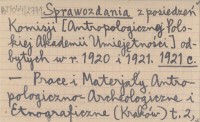 Sprawozdania z posiedzeń
Komisji [Antropologicznej Pols-
kiej Akademii Umiejętności] od-
bytych w r. 1920 i 1921. 1921 r.
— Prace i Materjały Antro-
pologiczno-Archeologiczne i
Etnograficzne (Kraków) t. 2,